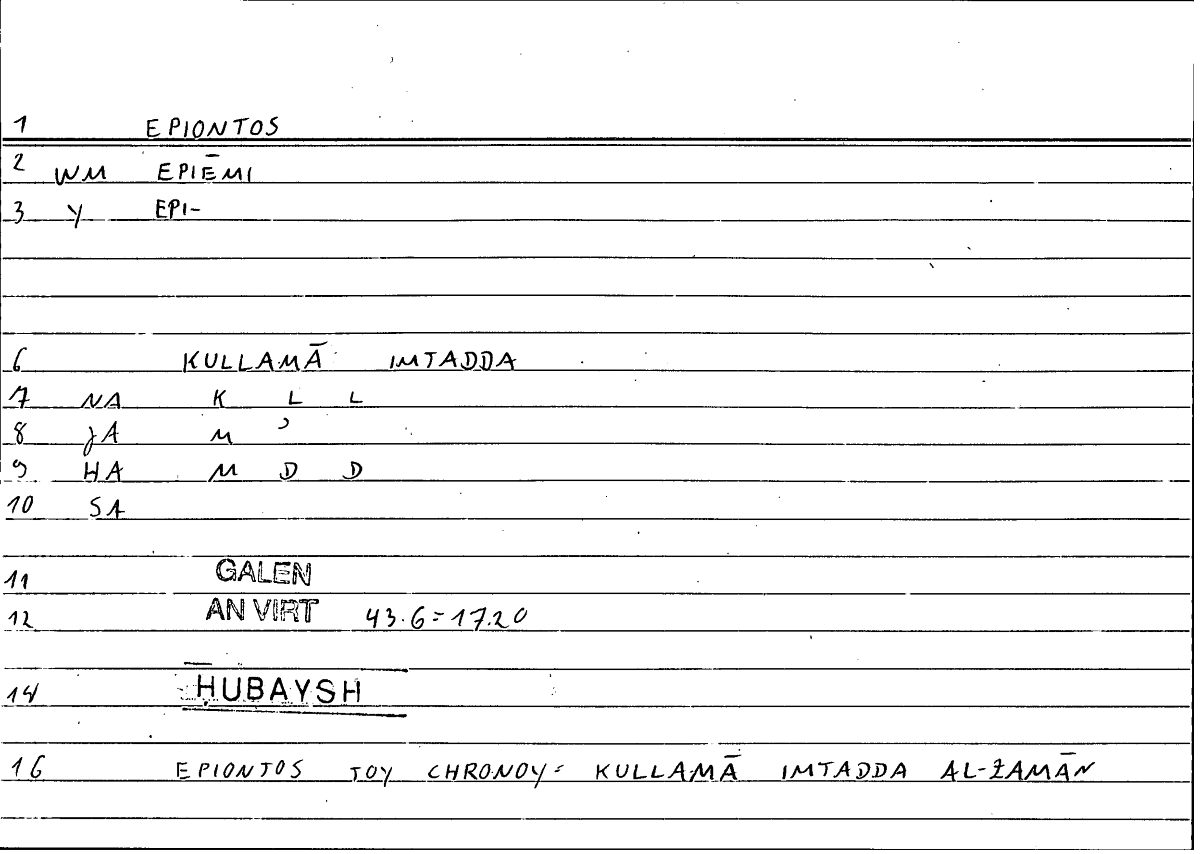 1 EPIONTOS
2 WM EPIĒMI
3 Y EPI-
6 KULLAMĀ IMTADDA
7 NA K L L
8 JA M ʾ
9 HA M D D
10 SA
11 GALEN
12 AN VIRT 43.6=17.20
14 ḤUBAYSH
16 EPIONTOS TOY CHRONOY= KULLAMĀ IMTADDA AL-ZAMĀN